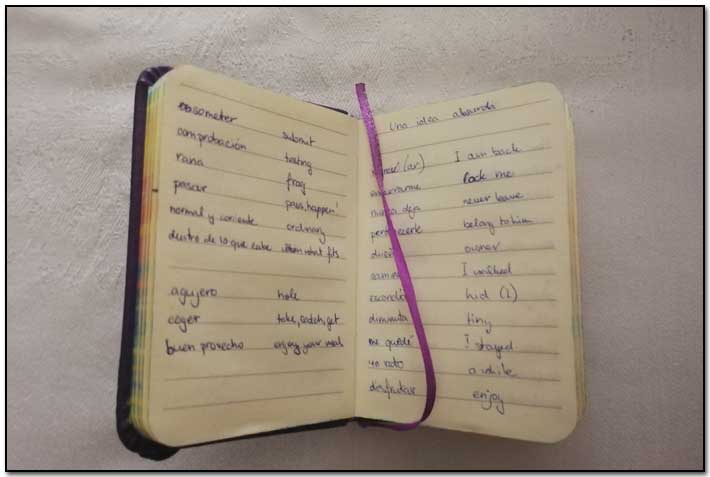 someter submit
comprobación testing
rana frog
pasar pass, happen
normal y corriente ordinary
dentro de lo que cabe within what fits
agujero hole
coger take, catch, get
buen provecho enjoy your meal
Una idea absurda
(ar) I am back
lock me
nunca deja never leave
belong to him
owner
I walked
hid
diminuta tiny
me quedé I stayed
un rato a while
disfrutar enjoy